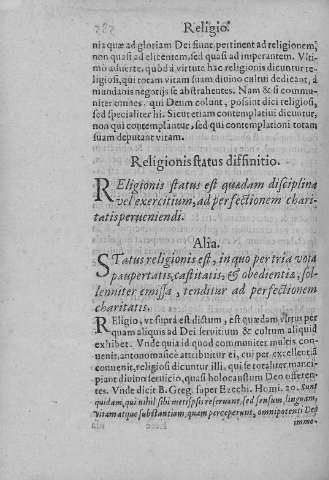 Religio.
nia quæ ad gloriam Dei fiunt, pertinent ad religionem,
non quasi ad elicentem, sed quasi ad imperantem. Vlti-
mo aduerte, quod à virtute hac religionis dicuntur re-
ligiosi, qui totam vitam suam diuino cultui dedicant, à
mundanis negotijs se abstrahentes. Nam & si commu-
niter omnes qui Deum colunt, possint dici religiosi,
sed specialiter hi. Sicut etiam contemplatiui dicuntur,
non qui contemplantur, sed qui contemplationi totam
suam deputant vitam.
Religionis status diffinitio.
REligionis status est quædam disciplina
vel exercitium, ad perfectionem chari-
tatis perueniendi.
Alia.
STatus religionis est, in quo per tria vota
paupertatis, castitatis, & obedientiæ, sol-
lenniter emissa, tenditur ad perfectionem
charitatis.
REligio, vt supra est dictum, est quædam virtus per
quam aliquis ad Dei seruitium & cultum aliquid
exhibet. Vnde quia id quod communiter multis con-
uenit, antonomasicè attribuitur ei, cui per excellentiã
conuenit, religiosi dicuntur illi, qui se totaliter manci-
piant diuino seruicio, quasi holocaustum Deo offeren-
tes. Vnde dicit B. Greg. super Ezechi. Homi. 20. Sunt
quidam, qui nihil sibi metipsis reseruant, sed sensum, linguam,
vitam atque substantiam, quam perceperunt, omnipotenti Deo
immo-